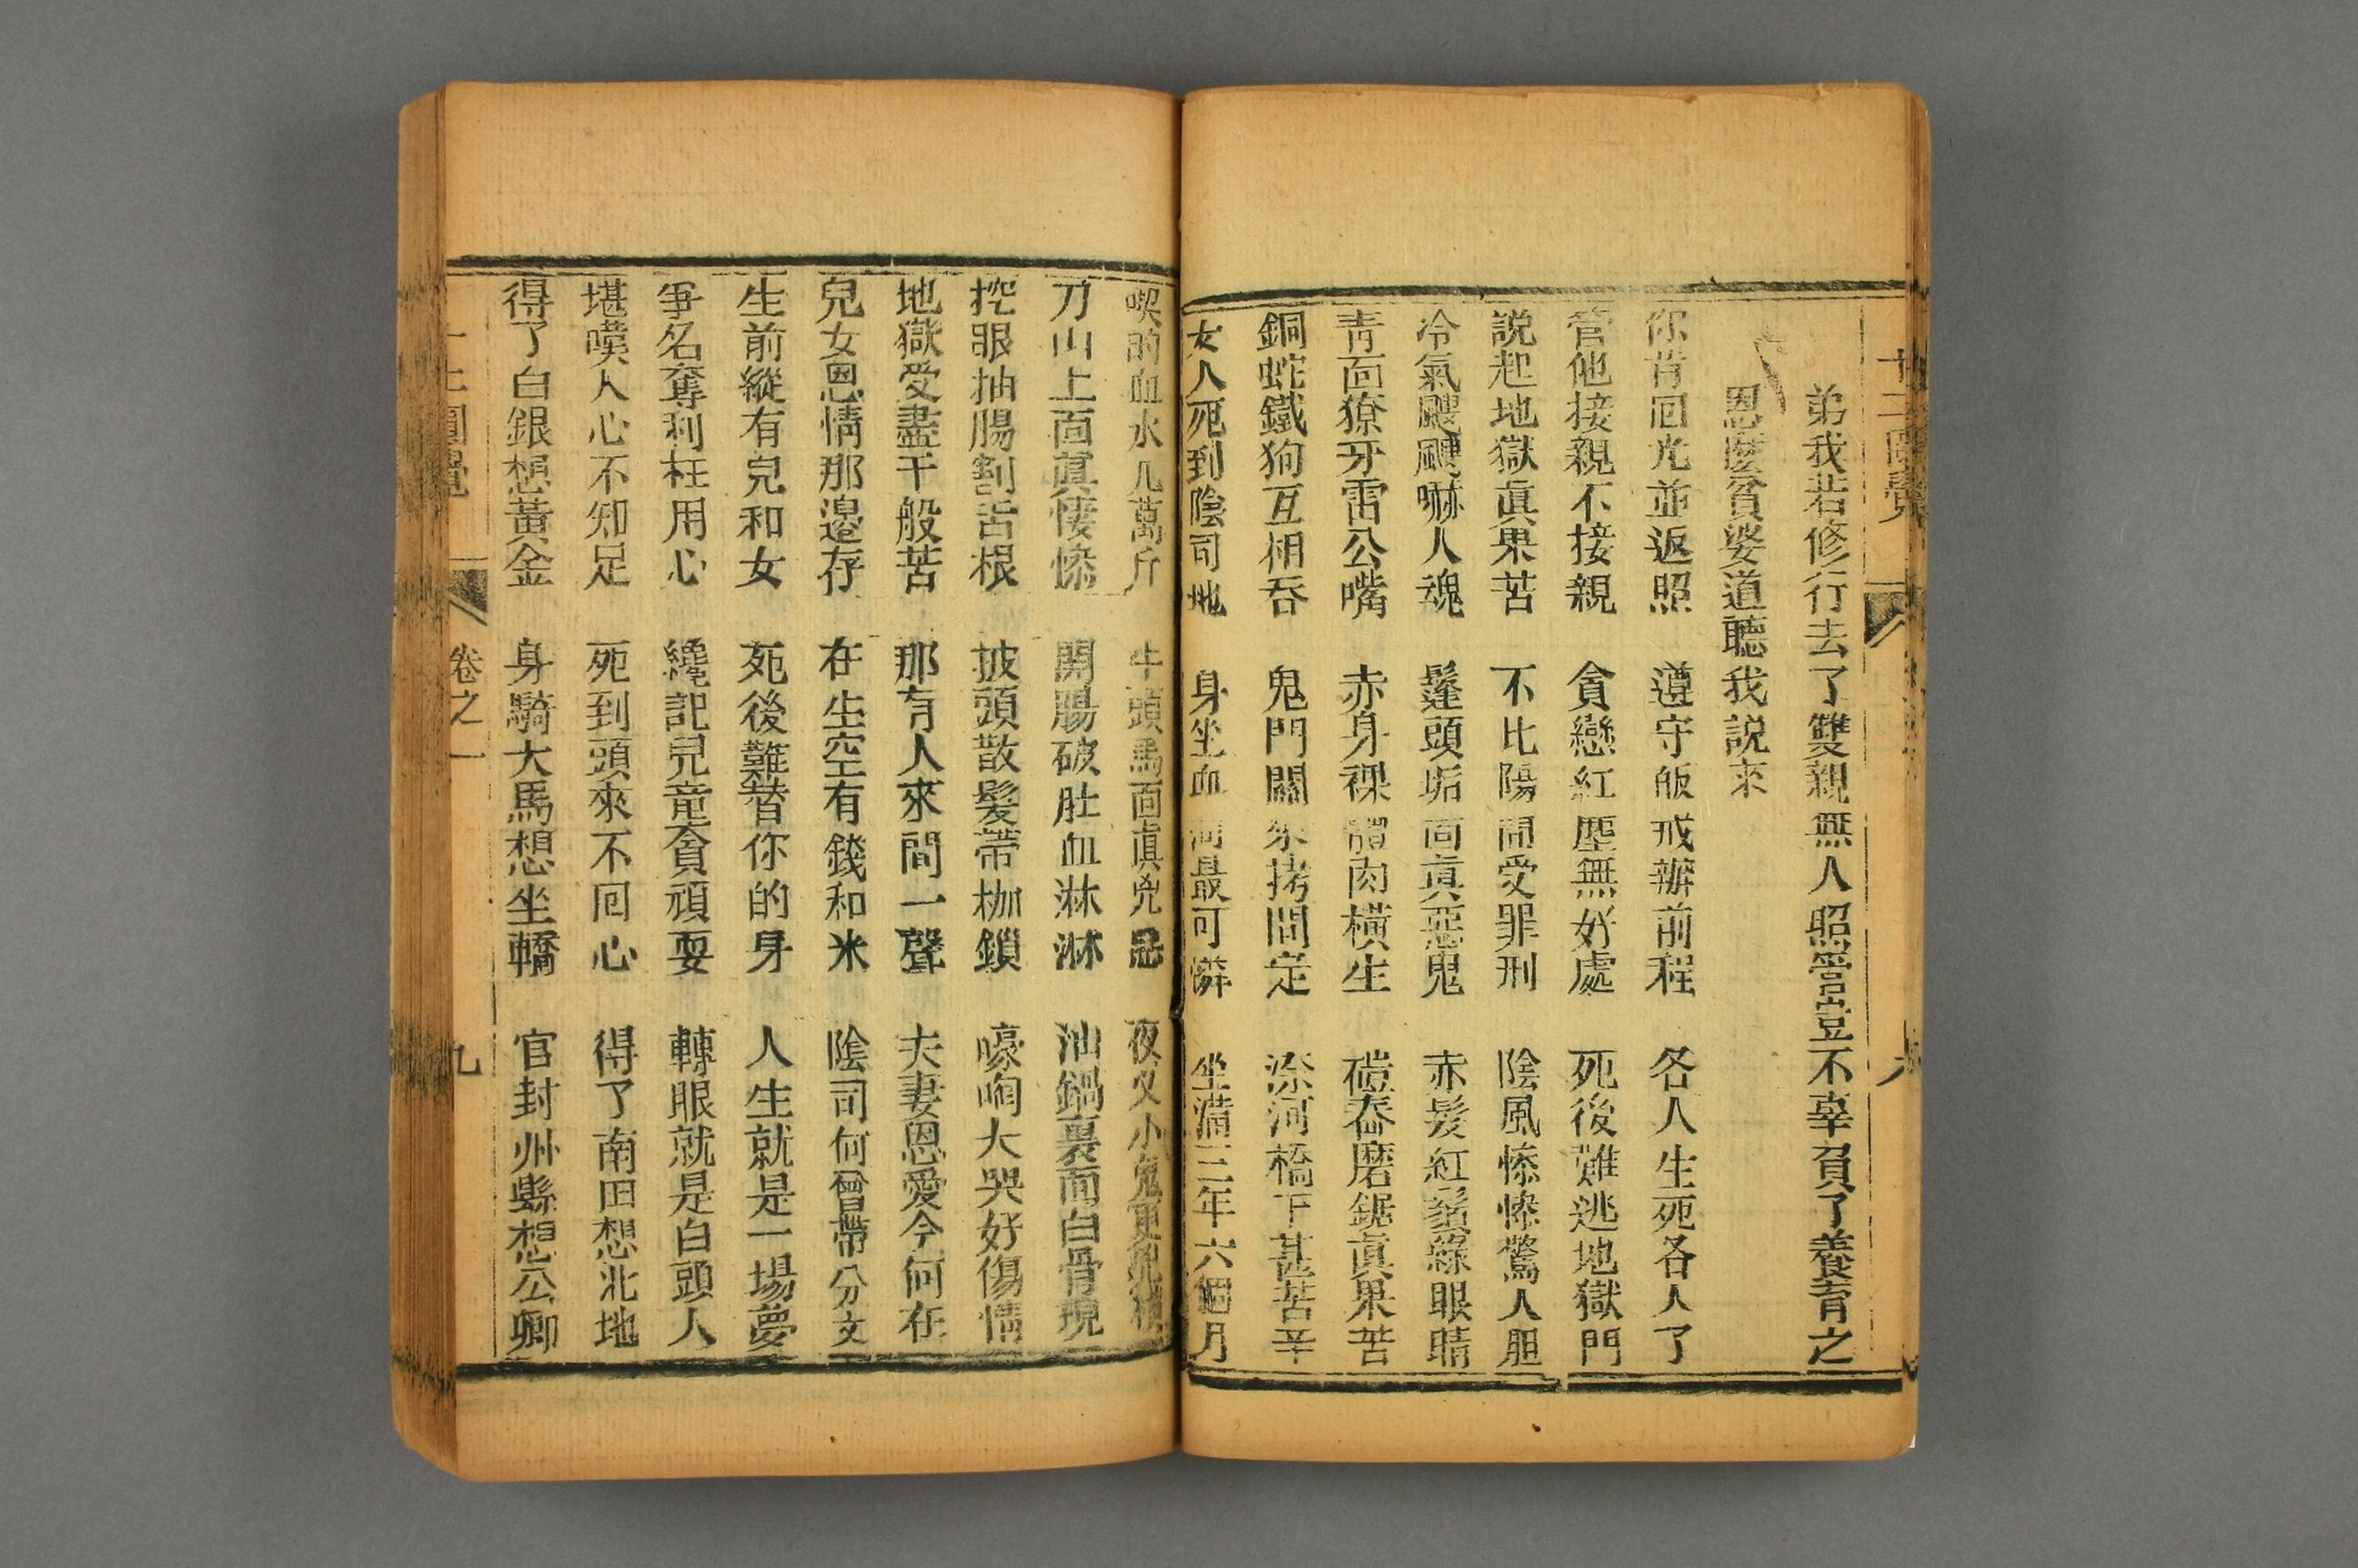 十二圓覺
弟我若修行去了雙親無人照管豈不辜負了養育之
恩麽貧婆道聽我說來
你肯囘光並返照 遵守皈戒辦前程 各人生死各人了
管他接親不接親 貪戀紅塵無好處 死後難逃地獄門
説起地獄真果苦 不比陽間受罪刑 陰風慘慘驚人胆
冷氣颼颼嚇人魂 鬔頭垢面真惡鬼 赤髮紅鬚綠眼睛
青面獠牙雷公嘴 赤身裸體肉橫生 磑舂磨鋸真果苦
銅蛇鐵狗互相吞 鬼門關 拷問定 奈河橋下甚苦辛
女人死到陰司地 身坐血河最可憐 坐滿三年六個月
喫的血水几萬斤 牛頭馬面真兇惡 夜叉小鬼更
刀山上面真悽慘 開腸破肚血淋淋 油鍋裏面白骨現
挖眼抽腸割舌根 披頭散髮帶枷鎖 嚎啕大哭好傷情
地獄受盡千般苦 那有人來問一聲 夫妻恩愛今何在
兒女恩情那邊存 在生空有錢和米 陰司何曾帶分文
生前縱有兒和女 死後難替你的身 人生就是一場夢
爭名奪利枉用心 纔記兒童貪頑耍 轉眼就是白頭人
堪嘆人心不知足 死到頭來不囘心 得了南田想北地
得了白銀想黃金 身騎大馬想坐轎 官封州縣想公卿
十二圓覺 卷之一 九